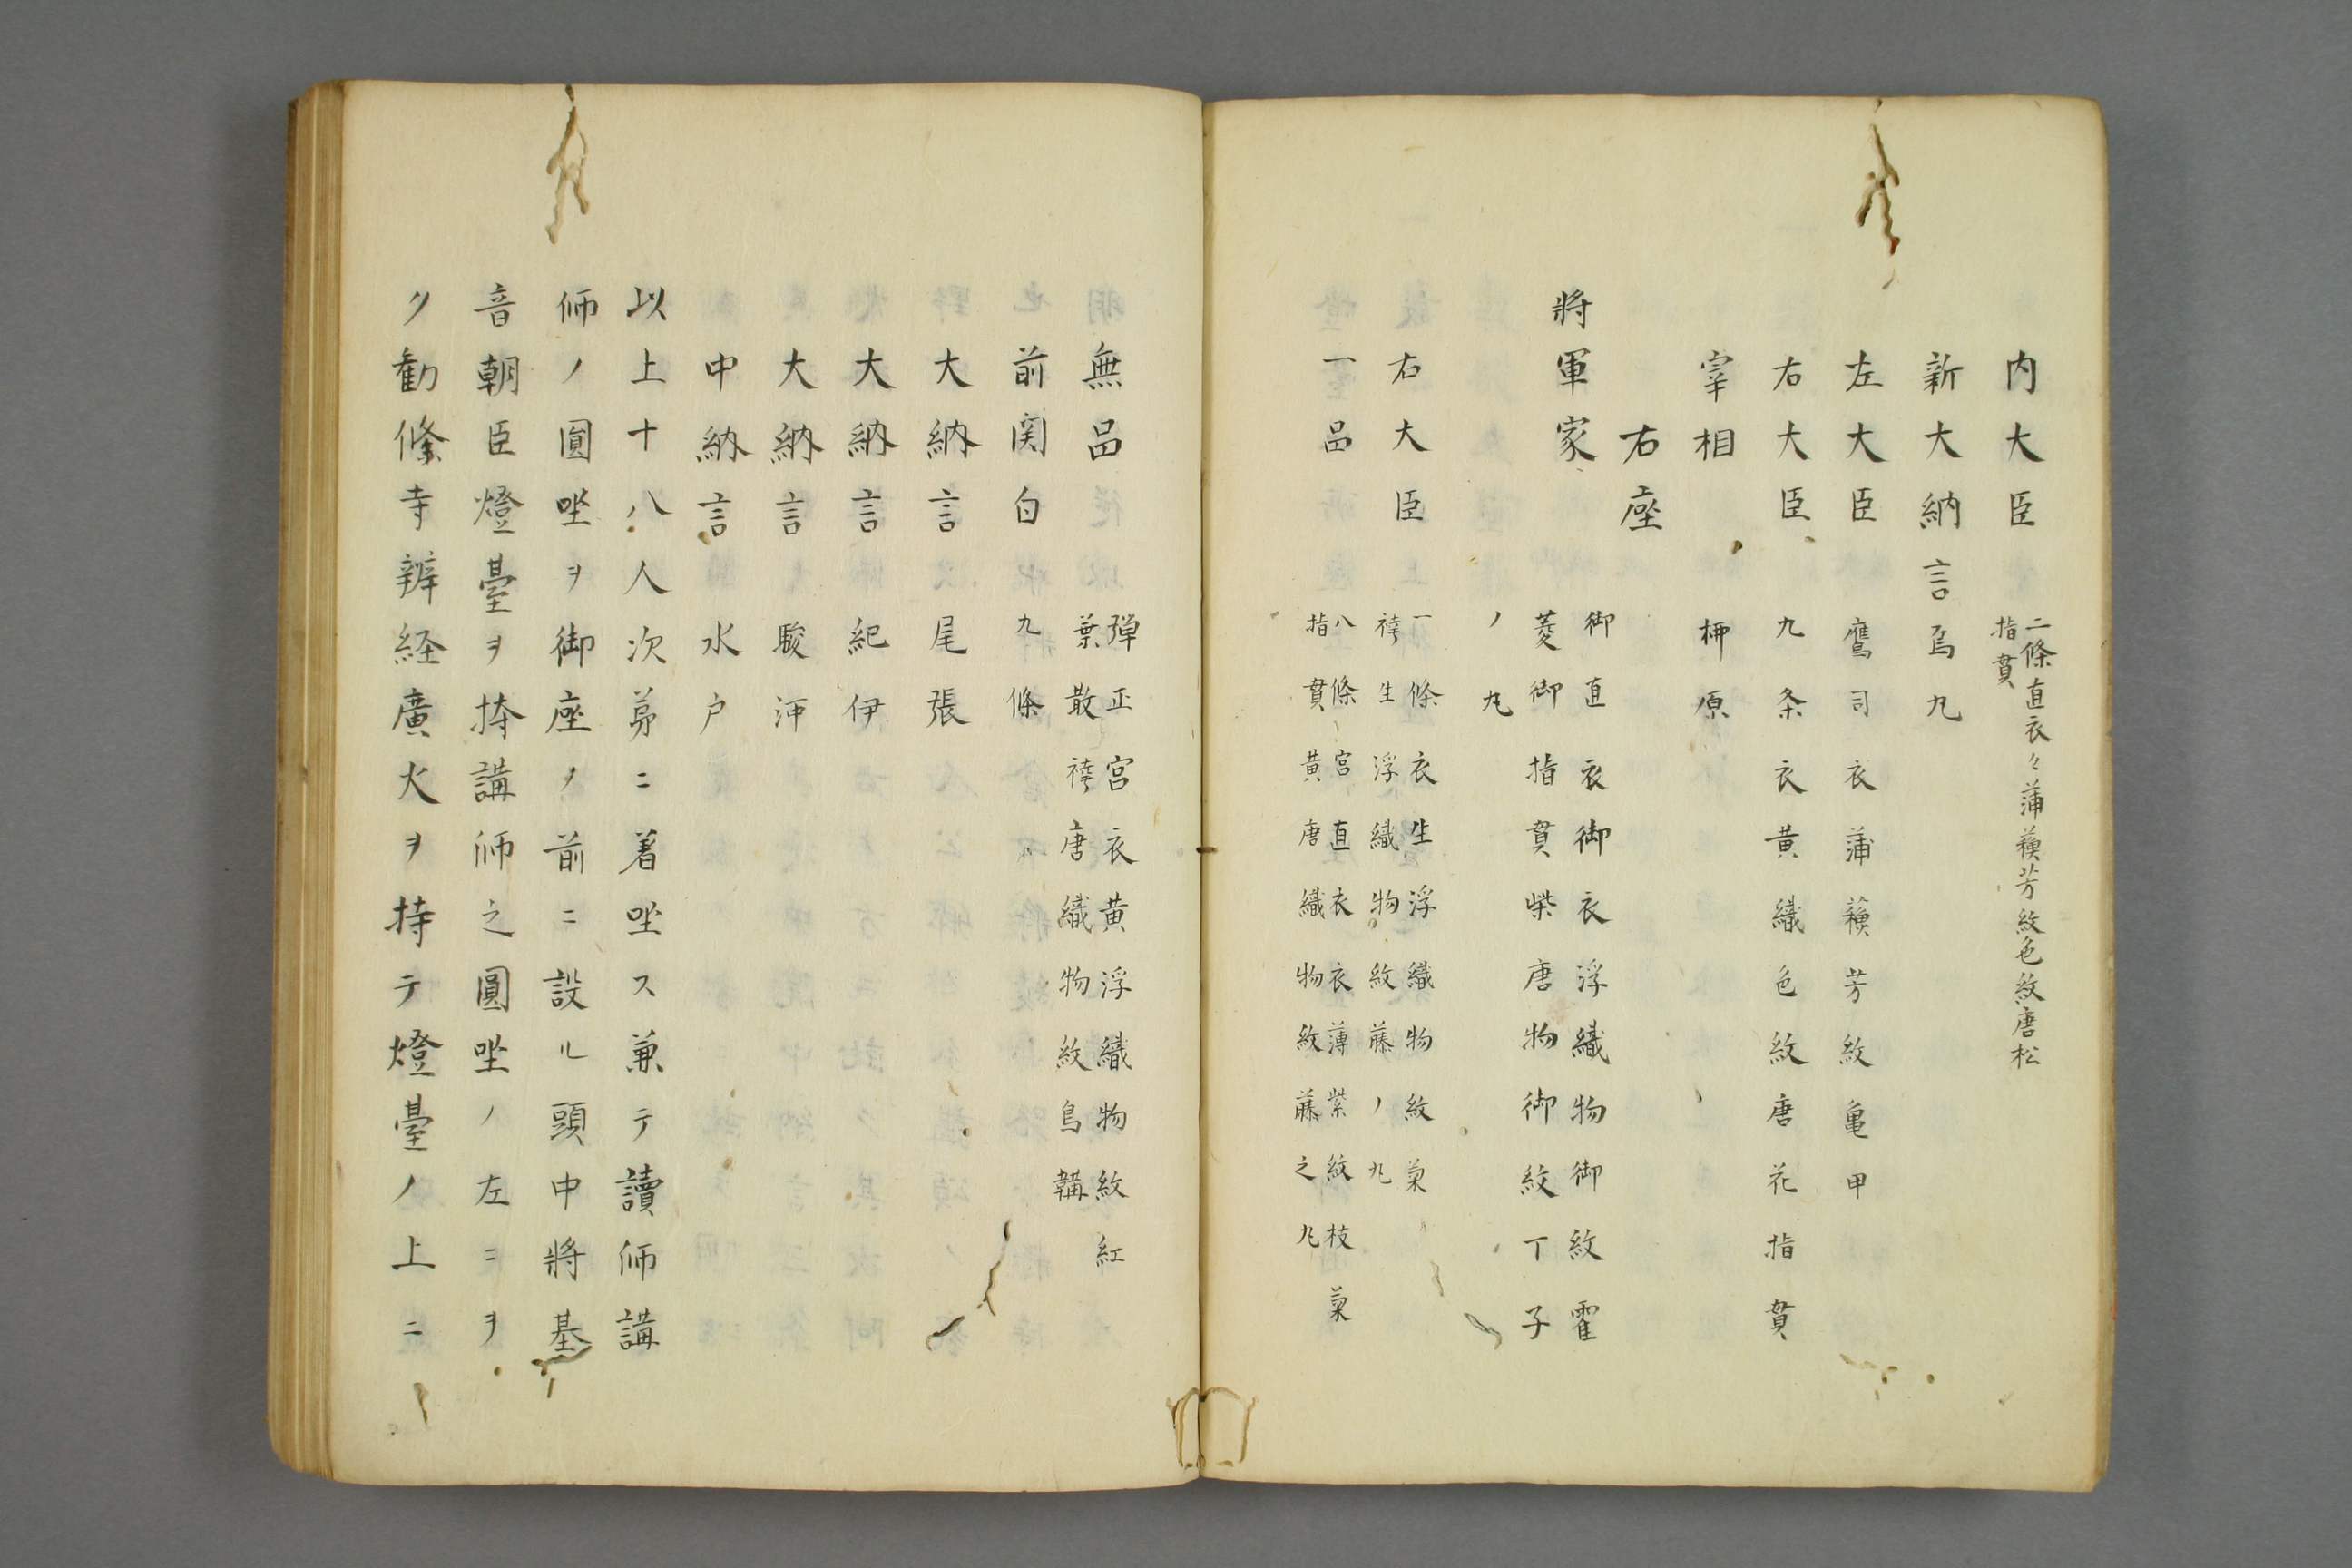 内大臣 二條直衣々蒲蘓芳紋色紋唐松
指貫
新大納言烏丸
左大臣 鷹司衣蒲蘓芳紋亀甲
右大臣 九条衣黄織色紋唐花指貫
宰相 栁原
右座
將軍家 御直衣御衣浮織物御紋霍
菱御指貫柴唐物御紋丁子
ノ丸
右大臣 一條衣生浮織物紋菓
袴生浮織物紋藤ノ丸
一品 八條宮直衣衣薄紫紋枝菓
指貫黄唐織物紋藤之丸
無品 弾正宮衣黄浮織物紋紅
葉散袴唐織物紋鳥韝
前関白 九條
大納言 尾張
大納言 紀伊
大納言 駿河
中納言 水戸
以上十八人次第ニ着坐ス兼テ讀師講
師ノ圓坐ヲ御座ノ前ニ設ル頭中將基
音朝臣燈臺ヲ捧講師之圓坐ノ左ニヲ
ク勧條寺辨経廣火ヲ持テ燈臺ノ上ニ